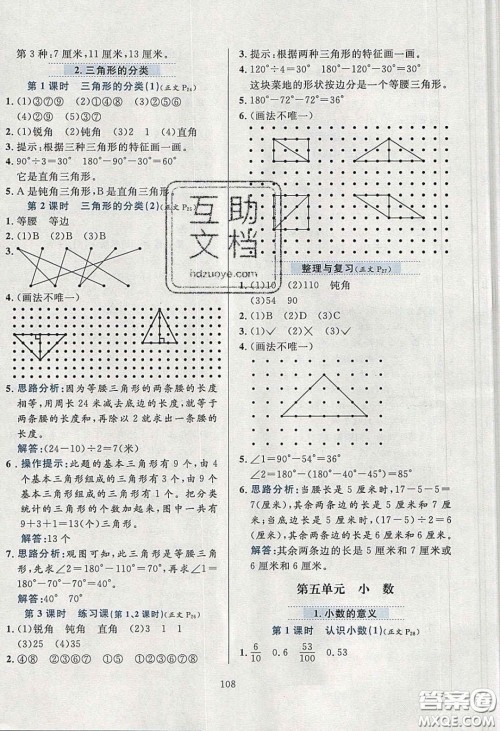 第 3 种:7 厘米,11 厘米,13 厘米。
2.三角形的分类
第 1 课时 三角形的分类(1)(正文 P24)
1.(1)③⑦⑨ (2)①④⑧ (3)②⑤⑥
(4)②⑤
2.(1)锐角 (2)钝角 (3)2 1 (4)直角
3.提示:根据三种三角形的特征画一画。
4.90°÷3=30° 180°-90°-30°=60°
它是直角三角形。
5.A 是钝角三角形,B 是直角三角形。
第 2 课时 三角形的分类(2)(正文 P25)
1.等腰 等边
2.(1)B (2)B (3)B
3.
4.(画法不唯一)
5.思路分析:因为等腰三角形的两条腰的长度
相等,用周长 24 米减去底边的长度,就得到
两条腰的长度和,再除以 2 就是一条腰的长
度。
解答:(24-10)÷2=7(米)
6.操作提示:此题的基本三角形有 9 个,由 4
个基本三角形组成的三角形有 3 个,由 9 个
基本三角形组成的三角形有 1 个。把分类
统计的三角形的个数加起来,图形中一共有
9+3+1=13(个)三角形。
解答:13 个
7.思路分析:观图可知,此三角形为等腰三角
形,先求出三角形的底角,180°-110°=
70°,再求顶角,列式为 180°-70°-70°=
40°。
解答:180°-110°=70°
180°-70°-70°=40°
第 3 课时 练习课(第 1、2 课时)(正文 P26)
1.(1)锐角 钝角 直角 (2)3 1 1
(3)25 (4)35
2.④⑧ ②⑤⑦ ①③⑥ ①⑤ ④⑧
3.提示:根据两种三角形的特征画一画。
4.120°÷4=30° 180°-120°-30°=30°
这块菜地的形状按边分是一个等腰三角形。
5.180°-72°-72°=36°
6.(画法不唯一)
整理与复习(正文 P27)
1.(1)10 (2)110 钝角
(3)54 90
2.(1)× (2)✓ (3)✓
3.(1)C (2)B (3)C
4.(画法不唯一)
5.∠1=90°-54°=36°
∠2=180°-90°-36°=54°
6.思路分析:当腰长是 5 厘米时,17-5-5=
7(厘米);当底边长是 5 厘米时,(17-5)÷
2=6(厘米),所以其余两条边的长是 5 厘米
和 7 厘米或 6 厘米和 6 厘米。
解答:其余两条边的长是 5 厘米和 7 厘米或
6 厘米和 6 厘米。
第五单元 小 数
1.小数的意义
第 1 课时 认识小数(1)(正文 P28)
1. 6/10 0.3 53/100 0.53
108
互助
文档
hdzuoye.com
答案圈
MXQE.COM